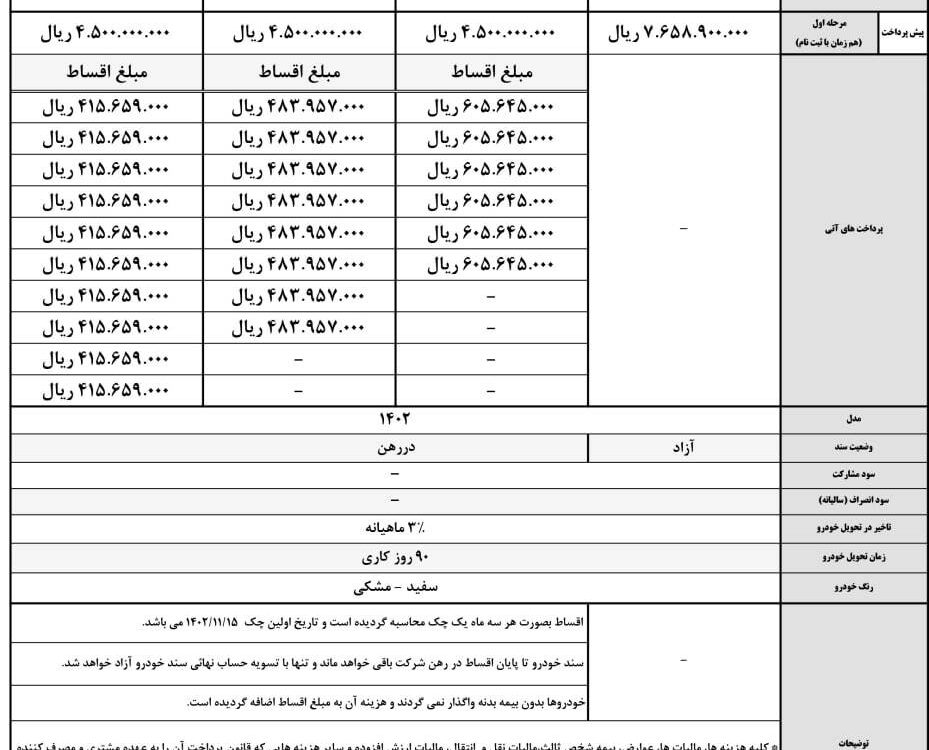 پیش پرداخت
مرحله اول
(هم زمان با ثبت نام)
۷.۶۵۸.۹۰۰.۰۰۰ ریال ۴.۵۰۰.۰۰۰.۰۰۰ ریال ۴.۵۰۰.۰۰۰.۰۰۰ ریال ۴.۵۰۰.۰۰۰.۰۰۰ ریال
پرداخت های آتی
–
مبلغ اقساط مبلغ اقساط مبلغ اقساط
۶۰۵.۶۴۵.۰۰۰ ریال ۴۸۳.۹۵۷.۰۰۰ ریال ۴۱۵.۶۵۹.۰۰۰ ریال
۶۰۵.۶۴۵.۰۰۰ ریال ۴۸۳.۹۵۷.۰۰۰ ریال ۴۱۵.۶۵۹.۰۰۰ ریال
۶۰۵.۶۴۵.۰۰۰ ریال ۴۸۳.۹۵۷.۰۰۰ ریال ۴۱۵.۶۵۹.۰۰۰ ریال
۶۰۵.۶۴۵.۰۰۰ ریال ۴۸۳.۹۵۷.۰۰۰ ریال ۴۱۵.۶۵۹.۰۰۰ ریال
۶۰۵.۶۴۵.۰۰۰ ریال ۴۸۳.۹۵۷.۰۰۰ ریال ۴۱۵.۶۵۹.۰۰۰ ریال
۶۰۵.۶۴۵.۰۰۰ ریال ۴۸۳.۹۵۷.۰۰۰ ریال ۴۱۵.۶۵۹.۰۰۰ ریال
– ۴۸۳.۹۵۷.۰۰۰ ریال ۴۱۵.۶۵۹.۰۰۰ ریال
– ۴۸۳.۹۵۷.۰۰۰ ریال ۴۱۵.۶۵۹.۰۰۰ ریال
– – ۴۱۵.۶۵۹.۰۰۰ ریال
– – ۴۱۵.۶۵۹.۰۰۰ ریال
مدل ۱۴۰۲
وضعیت سند آزاد دررهن
سود مشارکت –
سود انصراف (سالیانه) –
تاخیر در تحویل خودرو ۳٪ ماهیانه
زمان تحویل خودرو ۹۰ روز کاری
رنگ خودرو سفید – مشکی
توضیحات
–
اقساط بصورت هر سه ماه یک چک محاسبه گردیده است و تاریخ اولین چک ۱۴۰۲/۱۱/۱۵ می باشد.
سند خودرو تا پایان اقساط در رهن شرکت باقی خواهد ماند و تنها با تسویه حساب نهائی سند خودرو آزاد خواهد شد.
خودروها بدون بیمه بدنه واگذار نمی گردند و هزینه آن به مبلغ اقساط اضافه گردیده است.
* کلیه هزینه ها، مالیات ها، عوارض، بیمه شخص ثالث، مالیات نقل و انتقال، مالیات ارزش افزوده و سایر هزینه هایی که قانون پرداخت آن را به عهده مشتری و مصرف کننده